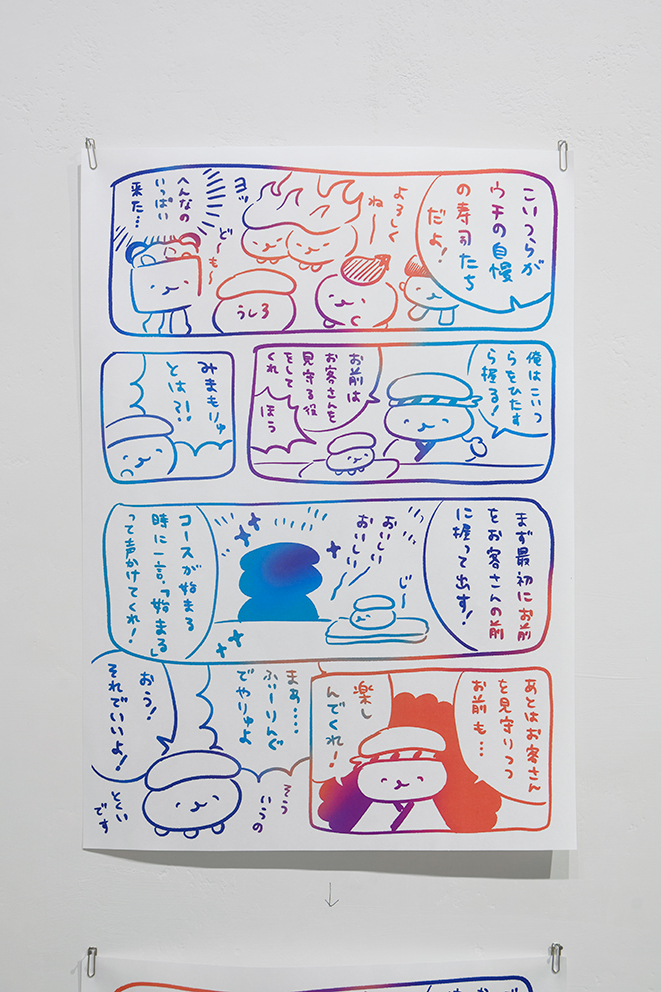 こいつらが
ウチの自慢
の寿司たち
だよ!
よろしく
ねー
ヨッ
ど〜も〜
うしろ
へんなの
いっぱい
来た…
俺はこいつ
らをひたす
ら握る!
お前は
お客さんを
見守る役
をして
くれ
ほう
みまもりゅ
とは?!
まず最初にお前
をお客さんの前
に握って出す!
じー
おいしい
おいしい
コースが始まる
時に一言、「始まる」
って声かけてくれ!
あとはお客さん
を見守りつつ
お前も…
楽し
んでくれ!
まぁ…
ふぃーりんぐ
でやりゅよ
そう
いうの
おう!
それでいいよ!
とくい
です